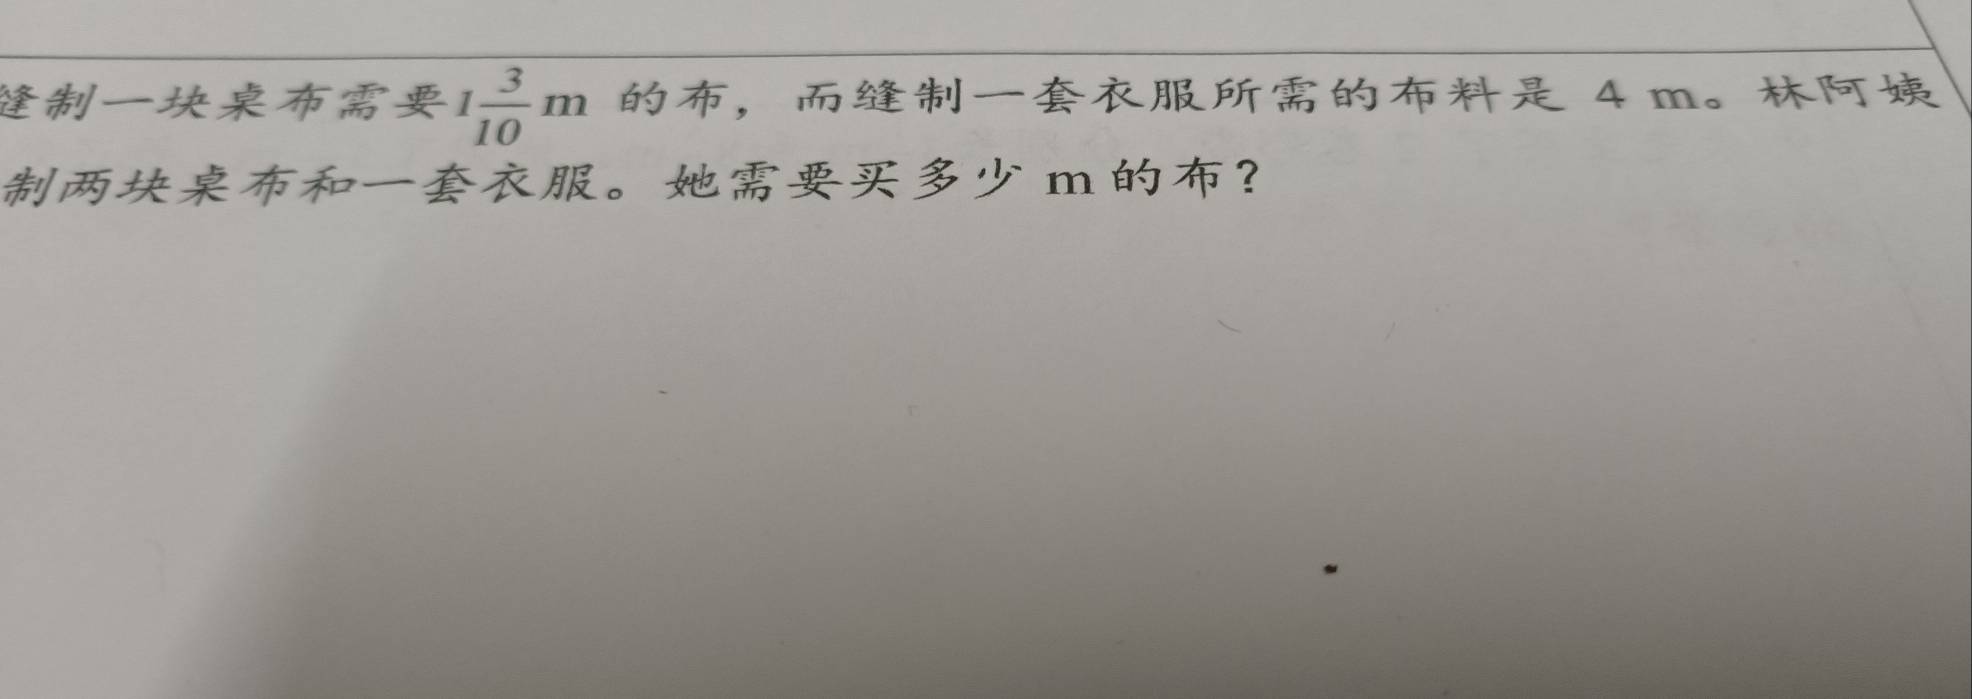 缝制一块桌布需要1 3/10 m 的布，而缝制一套衣服所需的布料是 4 m。林阿姨
制两块桌布和一套衣服。她需要买多少 m 的布?